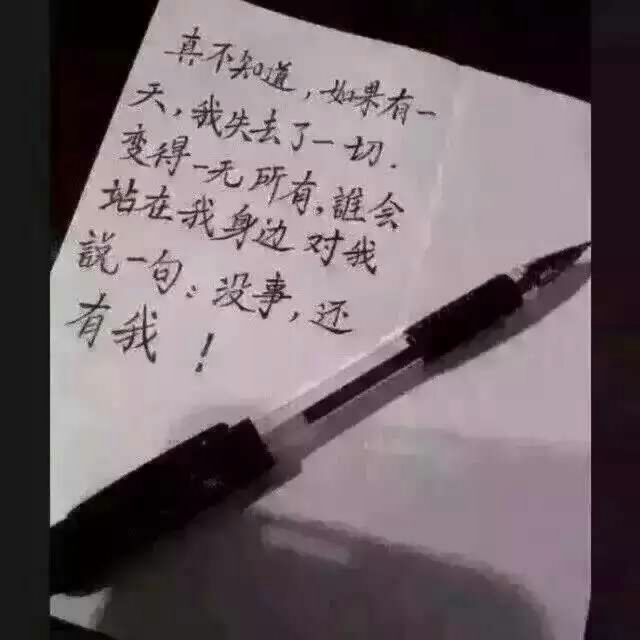 真不知道，如果有一
天，我失去了一切.
变得一无所有，誰会
站在我身边对我
説一句：没事，还
有我！